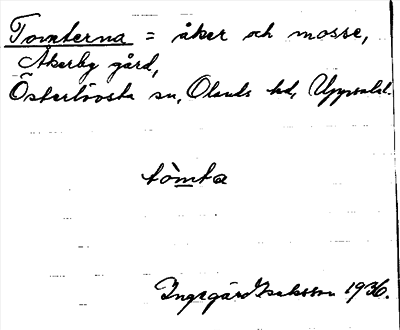 Tomterna = åker och mosse,
Åkerby gård,
Österlövsta sn, Olands hd, Uppsala l.
tòmta
Ingegärd Isaksson 1936.